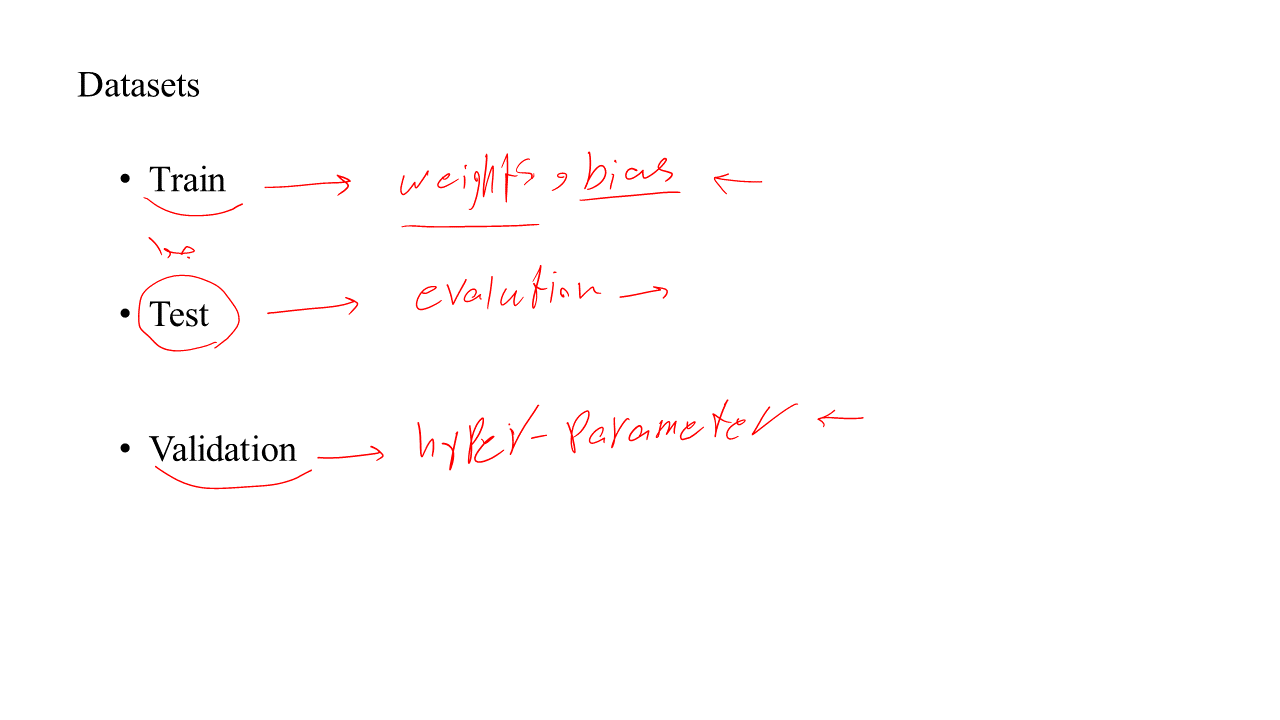 Datasets
• Train → weights, bias ←
• Test → evalution →
• Validation → hyper-parameter ←